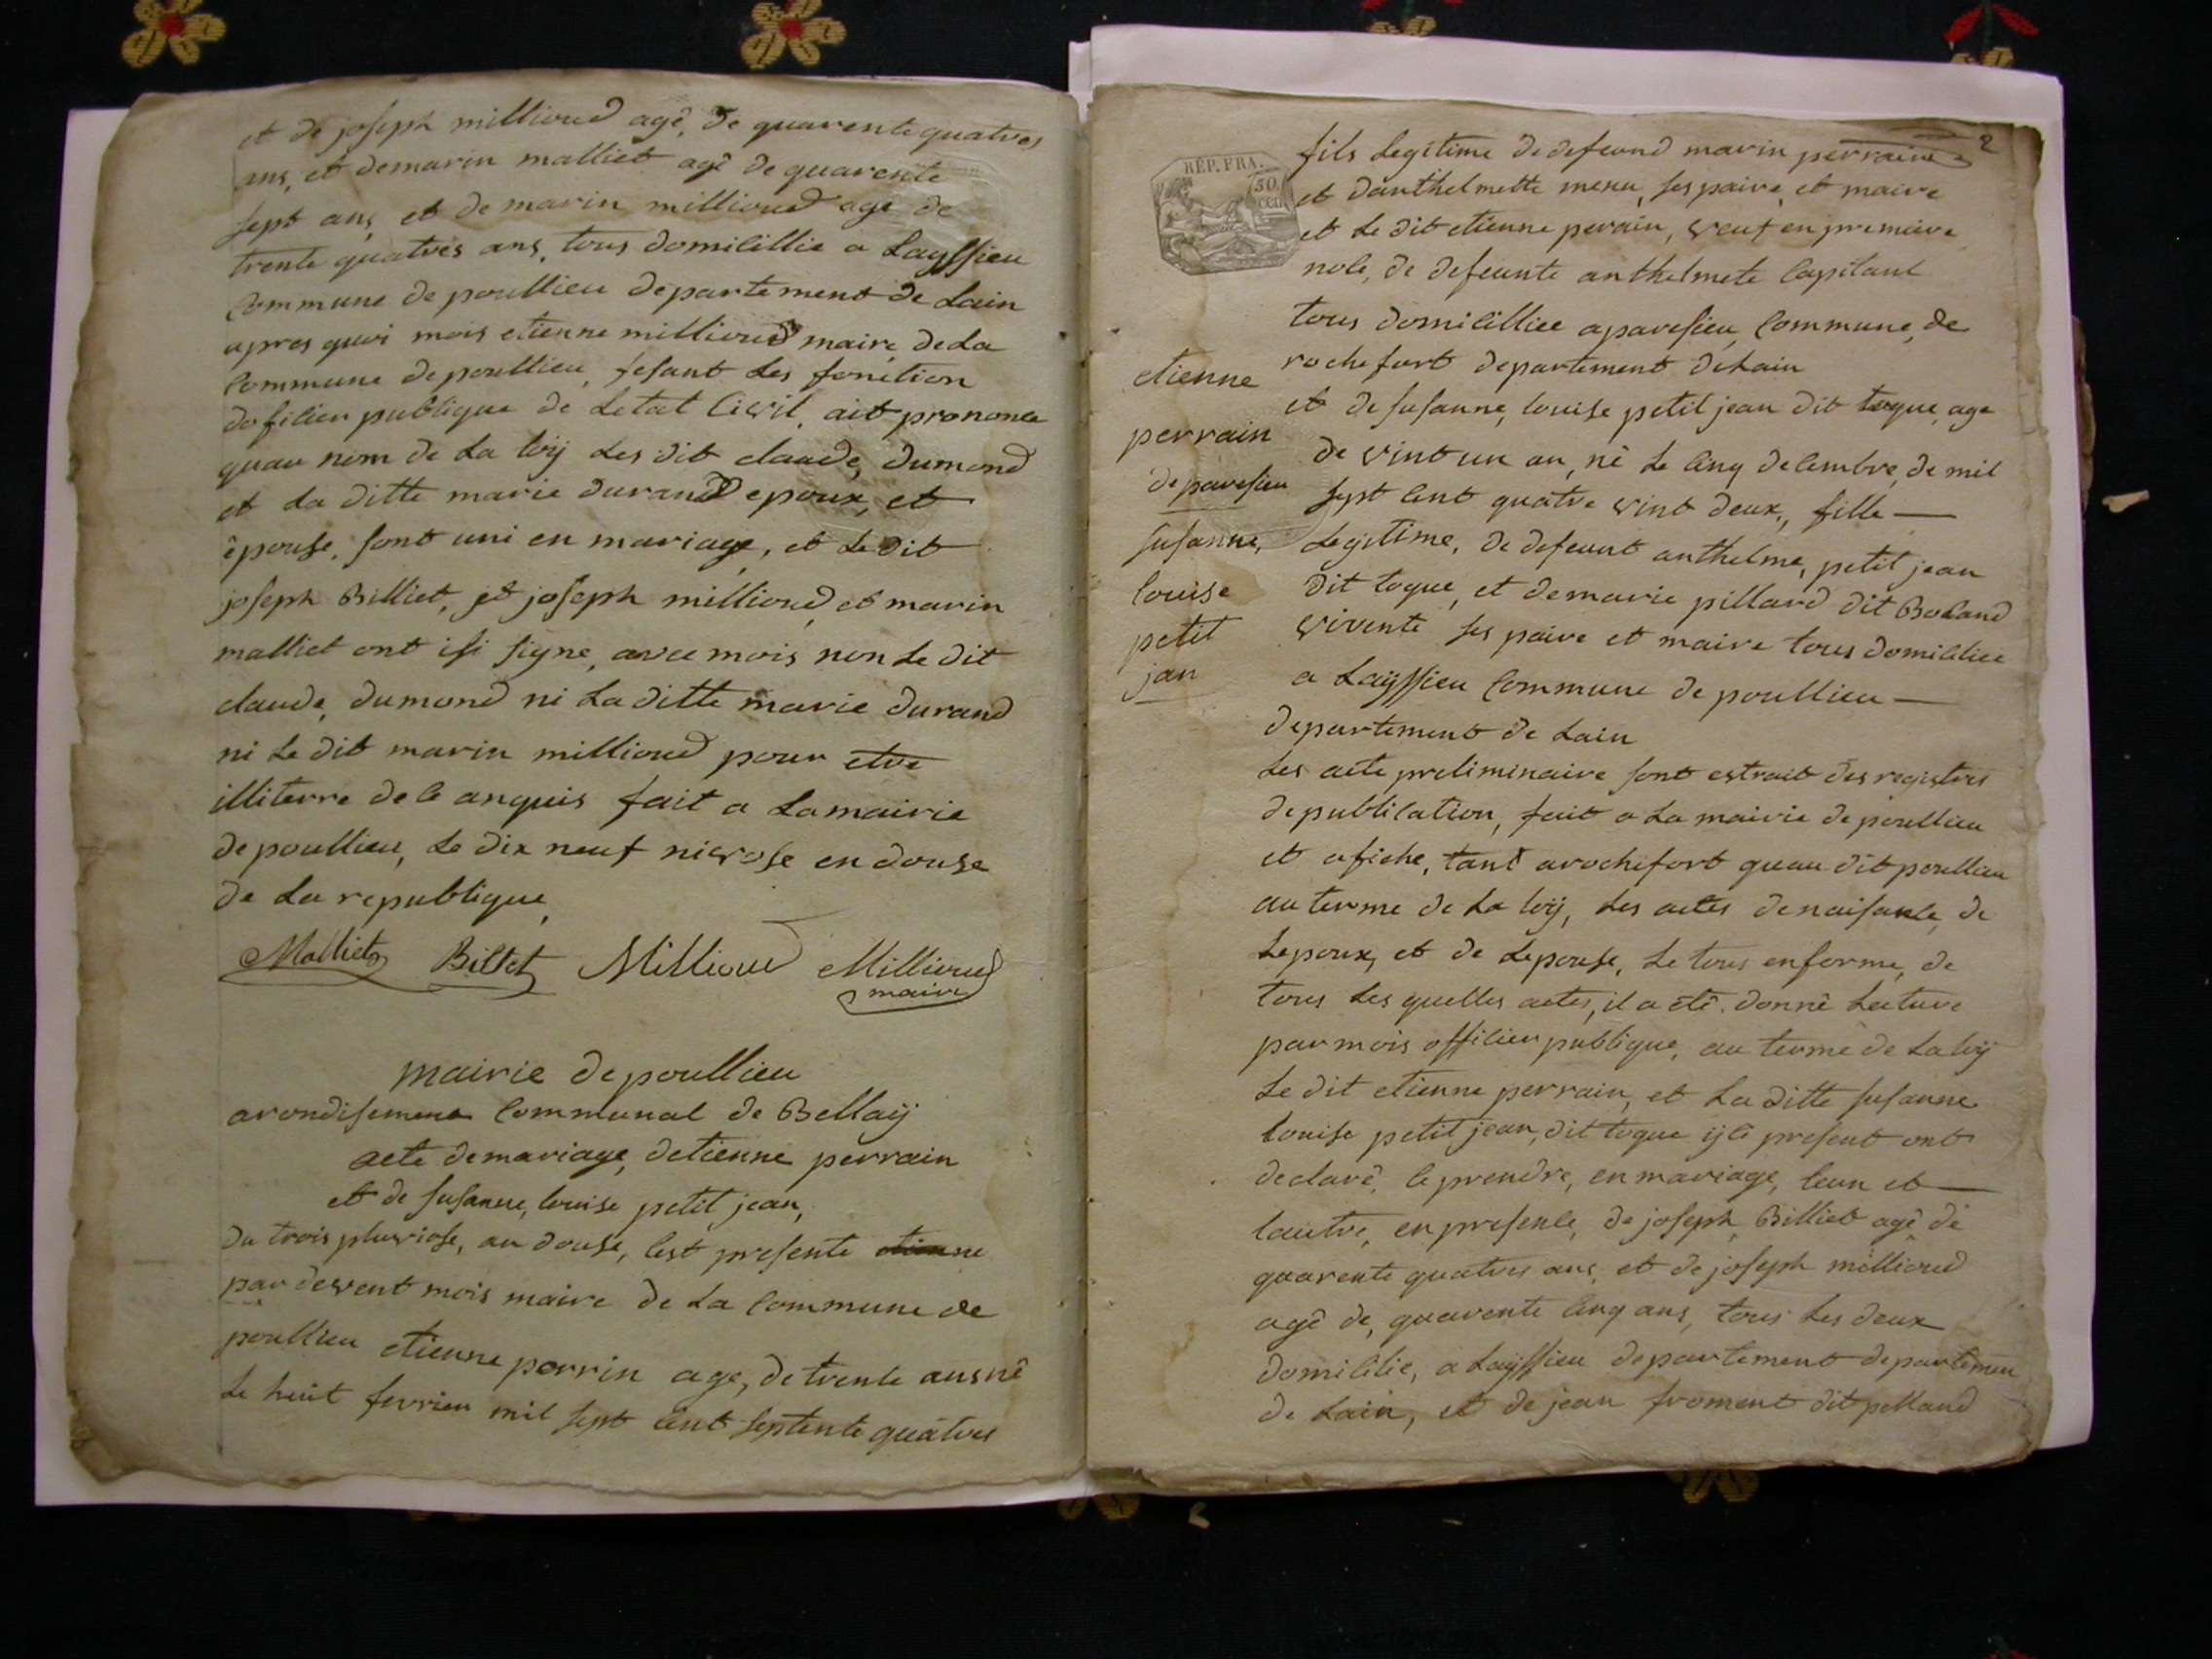 et de joseph millioud agê, de quarente quatres
ans, et demarin malliet agê de quarente
sept ans, et de marin millioud agê de
trente quatres ans, tous domicillie a Layssieu
Commune de poullieu departement de Lain
apres quoi mois etienne millioud maire de La
Commune de poullieu, fesant Les fonction
dofisier publique de Letat Civil, ait prononce
quau nom de La loÿ Les dit claude, dumond
et La ditte marie durand epoux, et
êpouse, sont uni en mariage, et Le dit
joseph Billiet, et joseph millioud, et marin
malliet ont isi signe, avec mois non Le dit
claude, dumond ni La ditte marie durand
ni Le dit marin millioud pour etre
illiterre de ce anquis fait a La mairie
de poullieu, Le dix neuf nivose en douse
de La republique,
Malliet Billet Millioud Millioud
maire
mairie de poullieu
arondisement Communal de Bellaÿ
acte demariage, detienne perrain
et de susanne, louise petit jean,
du trois pluviose, an douse, sest presente etienne
par devent mois maire de La Commune de
poullieu etienne perrin age, de trente ans nê
Le huit fevrier mil sept Cent septente quatres
2
RÉP. FRA.
50
cen
fils Legitime de defeund marin perraine
et danthelmette menu, ses paire, et maire
et Le dit etienne perain, veuf en premiere
nole, de defeunte anthelmete Capitant
tous domicilliee aparesieu, Commune, de
rochefort departement deLain
etienne
perrain
de paresieu
susanne,
louise
petit
jan
et de susanne, louise petit jean dit toque, age
de vint un an, nê Le Cinq decembre, de mil
sept Cent quatre vint deux, fille
Legitime, de defeunt anthelme, petit jean
dit toque, et demarie pillard dit Boland
vivente ses paire et maire tous domicilice
a Laÿssieu Commune de poullieu
departement de Lain
Les acte preliminaire sont estrait des registres
de publication, fait a La mairie de poullieu
et afiche, tant arochefort quau dit poullieu
au terme de La loÿ, Les actes de naisance, de
Lepoux, et de Lepouse, Le tous enforme, de
tous Les quelles actes, il a êtê donnê Lecture
par mois officier publique, au terme de La loÿ
Le dit etienne perrain, et La ditte susanne
louise petit jean, dit toque ÿci present ont
declarê, ce prendre, en mariage, leun et
lautre, en presence, de joseph, Billiet agê de
quarente quatres ans, et de joseph millioud
agê de, quarente Cinq ans, tous Les deux
domicilie, a Laÿssieu departement departemen
de Lain, et de jean froment dit pelland